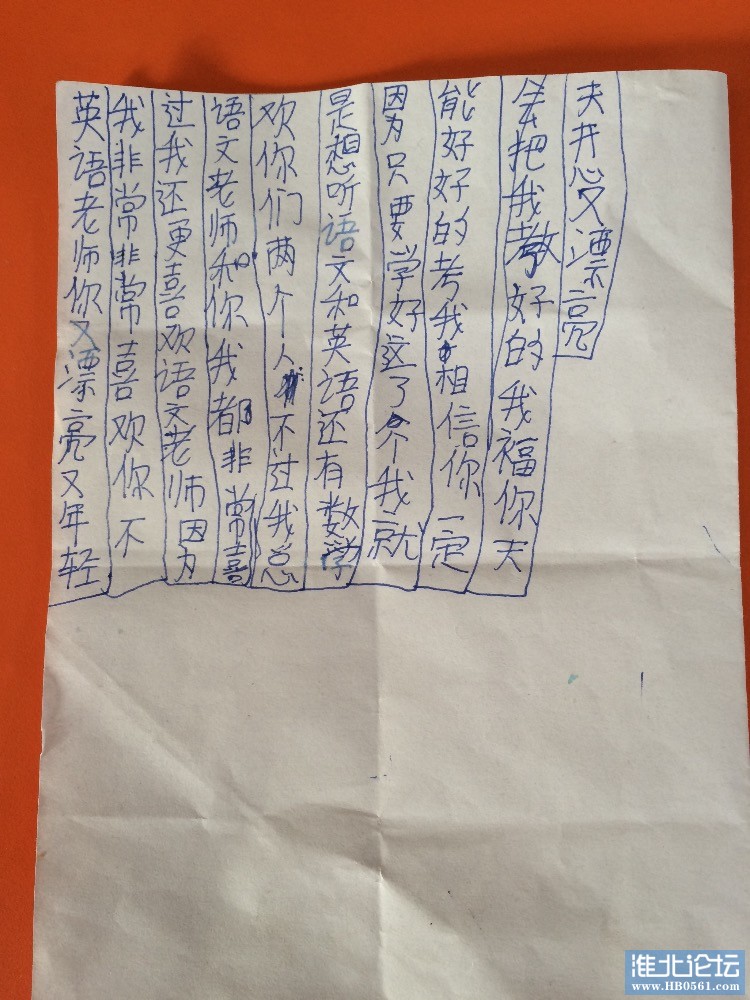 英语老师你又漂亮又年轻
我非常非常喜欢你不
过我还更喜欢语文老师因为
语文老师和你我都非常喜
欢你们两个人不过我总
是想听语文和英语还有数学
因为只要学好这了个我就
能好好的考我相信你一定
会把我教好的我福你天
天开心又漂亮
淮北论坛
www.HB0561.com